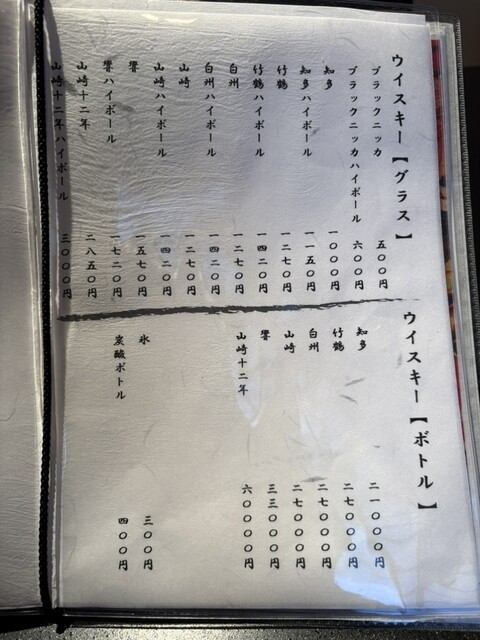 ウイスキー【グラス】
ブラックニッカ 五〇〇円
ブラックニッカハイボール 六〇〇円
知多 一〇〇〇円
知多ハイボール 一一五〇円
竹鶴 一二七〇円
竹鶴ハイボール 一四二〇円
白州 一二七〇円
白州ハイボール 一四二〇円
山崎 一二七〇円
山崎ハイボール 一四二〇円
響 一五七〇円
響ハイボール 一七二〇円
山崎十二年 二八五〇円
山崎十二年ハイボール 三〇〇〇円
ウイスキー【ボトル】
知多 二一〇〇〇円
竹鶴 二七〇〇〇円
白州 二七〇〇〇円
山崎 二七〇〇〇円
響 三三〇〇〇円
山崎十二年 六〇〇〇〇円
氷 三〇〇円
炭酸ボトル 四〇〇円